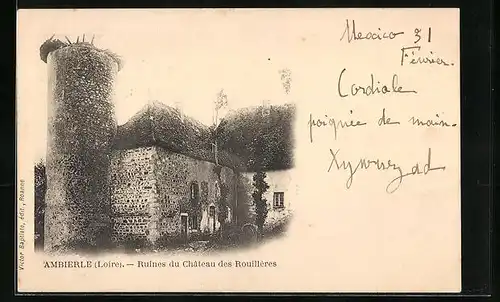 Mexico 31
Février.
Cordiale
poignée de main.
AMBIERLE (Loire). — Ruines du Château des Rouillères
Victor Baptiste, édit., Roanne